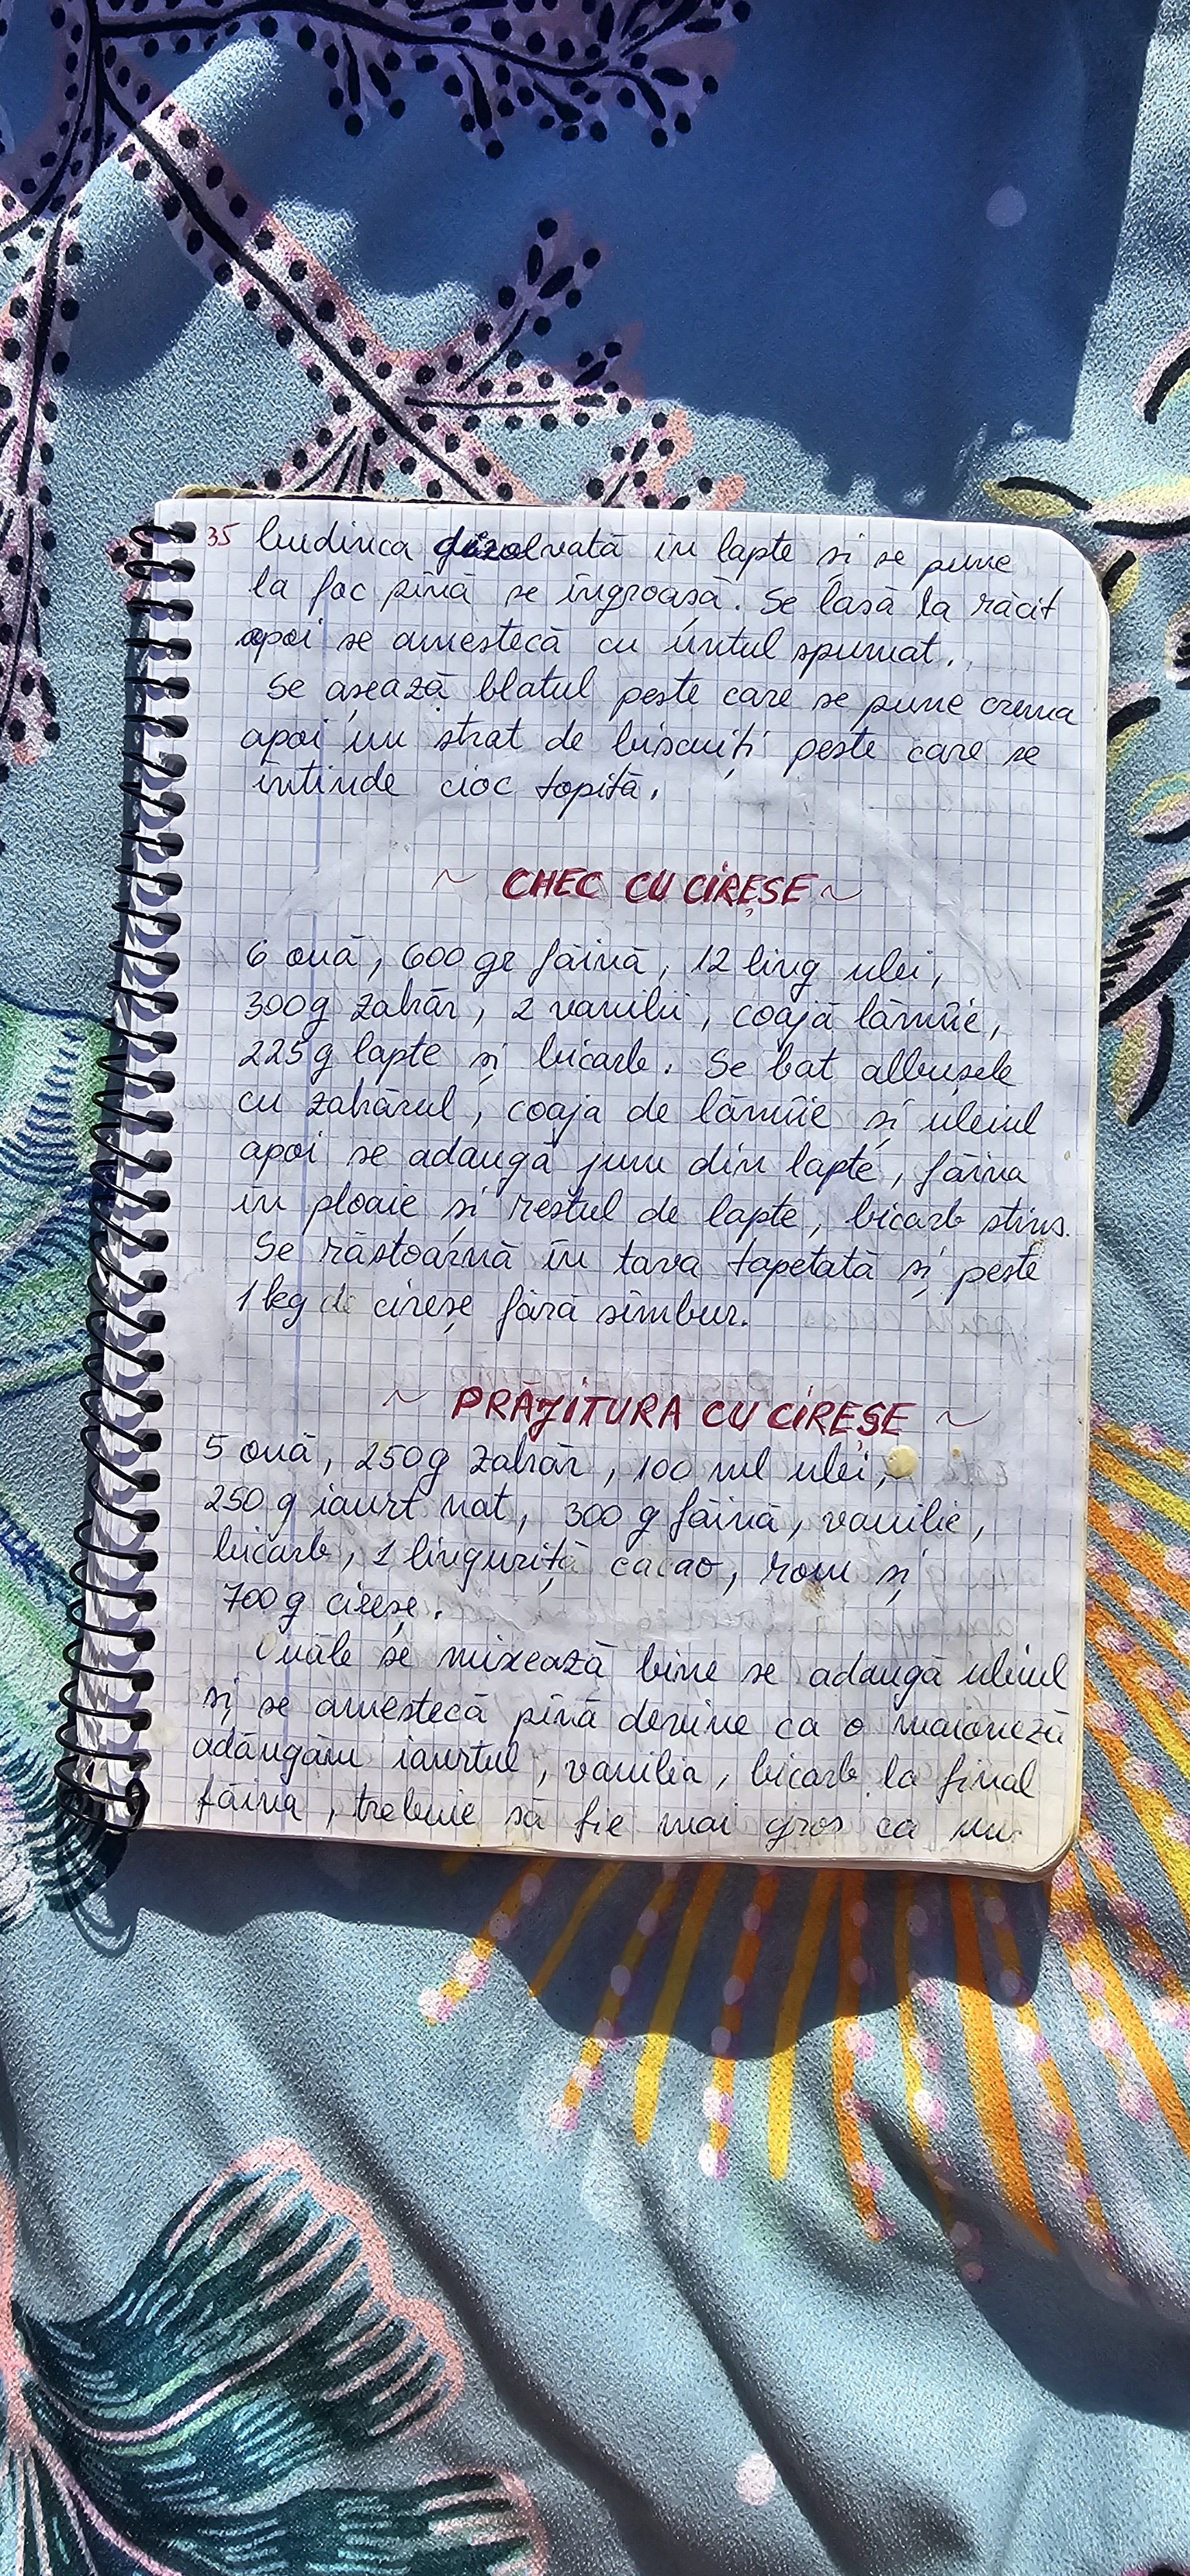 35 budinca dizolvată în lapte și se pune
la foc pînă se îngroașă. Se lasă la răcit
apoi se amestecă cu untul spumat.
Se așează blatul peste care se pune crema
apoi un strat de biscuiți peste care se
întinde cioc topită.
~ CHEC CU CIREȘE ~
6 ouă, 600 gr făină, 12 ling ulei,
300g zahăr, 2 vanilii, coajă lămîie,
225g lapte și bicarb. Se bat albușele
cu zahărul, coaja de lămîie și uleiul
apoi se adaugă jum din lapte, făina
în ploaie și restul de lapte, bicarb stins.
Se răstoarnă în tava tapetată și peste
1 kg de cireșe fără sîmbur.
~ PRĂJITURA CU CIREȘE ~
5 ouă, 250g zahăr, 100 ml ulei,
250 g iaurt nat, 300 g făină, vanilie,
bicarb, 1 linguriță cacao, rom și
700g cireșe.
Ouăle se mixează bine se adaugă uleiul
și se amestecă pînă devine ca o maioneză
adăugăm iaurtul, vanilia, bicarb la final
făina, trebuie să fie mai gros ca un